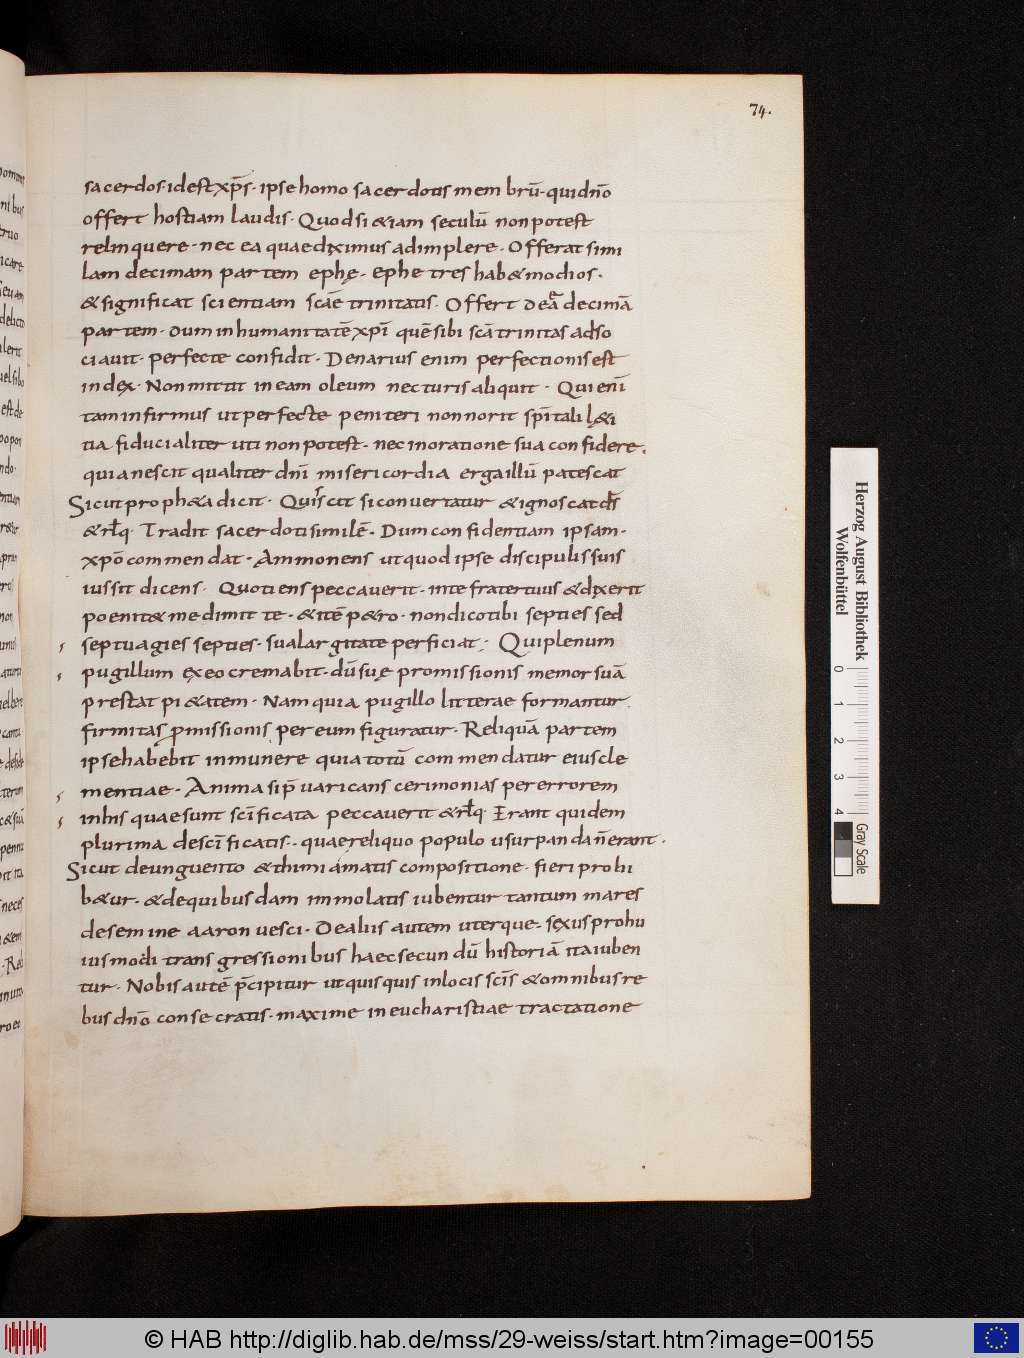 74.
sacerdos· idest xp̄s· ipse homo sacerdotis membrū· qui dn̄o
offert hostiam laudis· Quodsi &iam seculū non potest
relinquere· nec ea quae diximus adimplere· Offerat simi
lam decimam partem ephę· ephe tres hab& modios·
& significat scientiam sc̄ae trinitatis· Offert decimā
partem· dum inhumanitatē xp̄i quē sibi sc̄a trinitas adso
ciauit· perfecte confidit· Denarius enim perfectionis est
index· Non mittit in eam oleum nec turis aliquit· Qui enī
tam infirmus ut perfecte peniteri non norit sp̄itali l&i
tia fiducialiter uti non potest· nec inoratione sua confidere·
quia nescit qualiter dn̄i misericordia erga illū patescat
Sicut proph&a dicit· Quis scit si conuertatur & ignoscat ds̄
& rl̄q· Tradit sacerdoti similē· Dum confidentiam ipsam·
xp̄o commendat· Ammonens ut quod ipse discipulis suis
iussit dicens· Quotiens peccauerit· in te frater tuus & dixerit
poenit& me dimit te· & itē p&ro· non dico tibi septies sed
septuagies septies· sua largitate perficiat; Qui plenum
pugillum ex eo cremabit· dū suę promissionis memor suā
prestat pi&atem· Nam quia pugillo litterae formantur
firmitas p̱missionis per eum figuratur· Reliquā partem
ipse habebit in munere quia totū commendatur eius cle
mentiae· Anima si p̱uaricans cerimonias per errorem
in his quae sunt sc̄ificata peccauerit & rl̄q· Erant quidem
plurima de sc̄ificatis·· quae reliquo populo usurpanda n̄ erant·
Sicut de unguento & thimiamatis compositione· fieri prohi
b&ur· & de quibusdam immolatis iubentur tantum mares
de semine aaron uesci· De aliis autem uterque sexus prohu
iusmodi transgressionibus haec secundū historiā ita iuben
tur· Nobis autē p̄cipitur ut quisquis in locis sc̄is & omnibus re
bus dn̄o consecratis· maxime in eucharistiae tractatione
Herzog August Bibliothek
Wolfenbüttel
0 1 2 3 4
Gray Scale
© HAB http://diglib.hab.de/mss/29-weiss/start.htm?image=00155